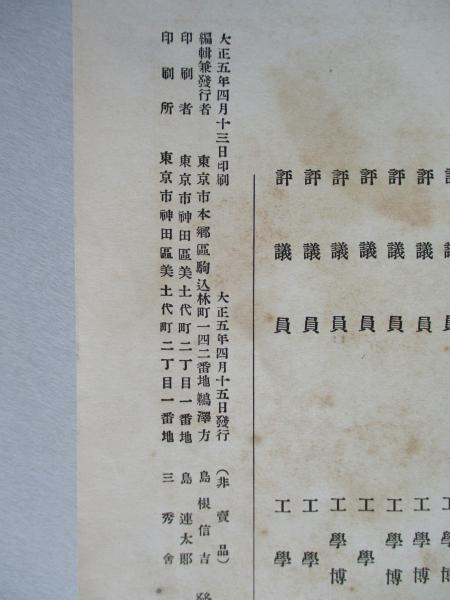 評議員 工學博
評議員 工學博
評議員 工學博
評議員 工學
評議員 工學博
評議員 工學
評議員 工學
大正五年四月十三日印刷 大正五年四月十五日發行 (非賣品)
編輯兼發行者 東京市本鄕區駒込林町一四二番地鵜澤方 島根信吉
印刷者 東京市神田區美土代町二丁目一番地 島連太郎
印刷所 東京市神田區美土代町二丁目一番地 三秀舍